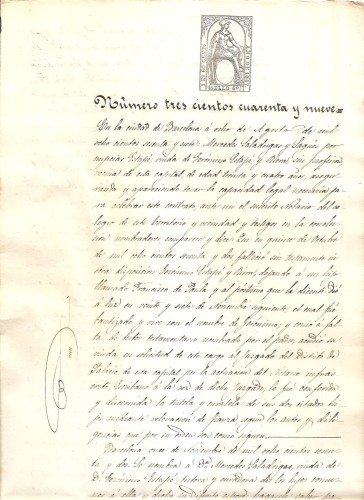 Número tres cientos cuarenta y nueve
En la ciudad de Barcelona á ocho de Agosto de mil
ocho cientos sesenta y siete Mercedes Saladrigas y Pagés por
nupcias Estapé, viuda de Gerónimo Estapé y Riera, sin profesion
vecina de esta capital de edad treinta y cuatro años, asegu-
rando y apareciendo tener la capacidad legal necesaria pa-
ra celebrar este contrato, ante mi el infrito Notario del co-
legio de este territorio y vecindad y testigos en la conclu-
sion nombraderos comparece y dice: Que en quince de Octubre
de mil ocho cientos sesenta y dos falleció sin testamento ni
otra disposicion Gerónimo Estapé y Riera, dejando á un hijo
llamado Francisco de Paula y al postumo que la dicente dió
á luz en veinte y siete de Noviembre siguiente, el cual fue
bautizado y vive con el nombre de Gerónimo; y como á fal-
ta de tutor testamentario nombrado por el padre, acudió su
viuda en solicitud de este cargo al Juzgado del Distrito de
Palacio de esta capital por la actuacion del Notario infras-
crito, Escribano á la vez de dicho Juzgado, le fue con ferida
y discernida la tutela y curatela de sus dos citados hi-
jos mediante relevacion de fianza segun los autos y dili-
gencias que por su orden son como siguen
Barcelona once de Noviembre de mil ocho cientos sesen-
ta y dos. Se nombra á Dª Mercedes Saladrigas, viuda de
D. Gerónimo Estapé tutora y curadora de los hijos comu-
nes á ella y dicho difunto esposo; hagasele saber pa-